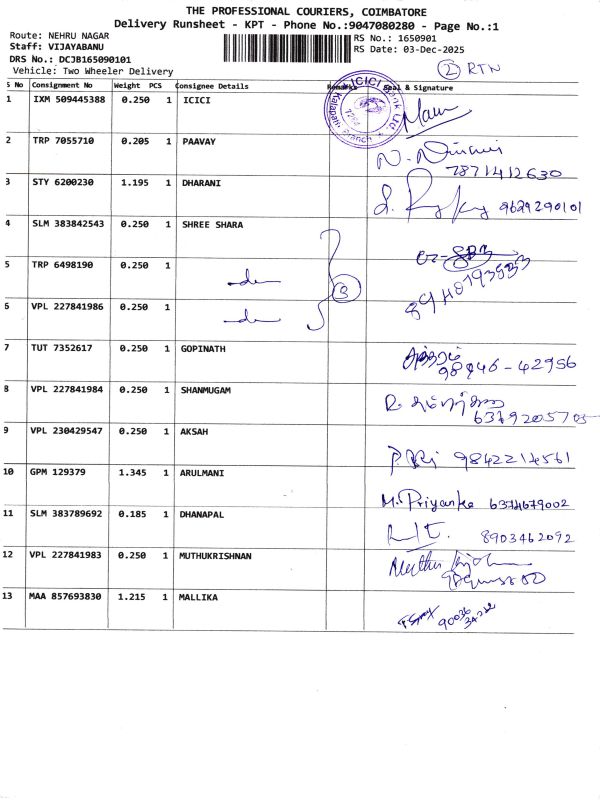 THE PROFESSIONAL COURIERS, COIMBATORE
Delivery Runsheet - KPT - Phone No.:9047080280 - Page No.:1
Route: NEHRU NAGAR
RS No.: 1650901
Staff: VIJAYABANU
RS Date: 03-Dec-2025
DRS No.: DCJB165090101
Vehicle: Two Wheeler Delivery
2 RTN
S No Consignment No Weight PCS Consignee Details Remarks Seal & Signature
1 IXM 509445388 0.250 1 ICICI
ICICI Bank Ltd. Kalapatti Branch
2 TRP 7055710 0.205 1 PAAVAY
7871412630
3 STY 6200230 1.195 1 DHARANI 9629290101
4 SLM 383842543 0.250 1 SHREE SHARA
5 TRP 6498190 0.250 1 3
6 VPL 227841986 0.250 1
7 TUT 7352617 0.250 1 GOPINATH
98946-42956
8 VPL 227841984 0.250 1 SHANMUGAM
6379205705
9 VPL 230429547 0.250 1 AKSAH
9842214561
10 GPM 129379 1.345 1 ARULMANI
M. Priyanka 6374679002
11 SLM 383789692 0.185 1 DHANAPAL
8903462092
12 VPL 227841983 0.250 1 MUTHUKRISHNAN
13 MAA 857693830 1.215 1 MALLIKA